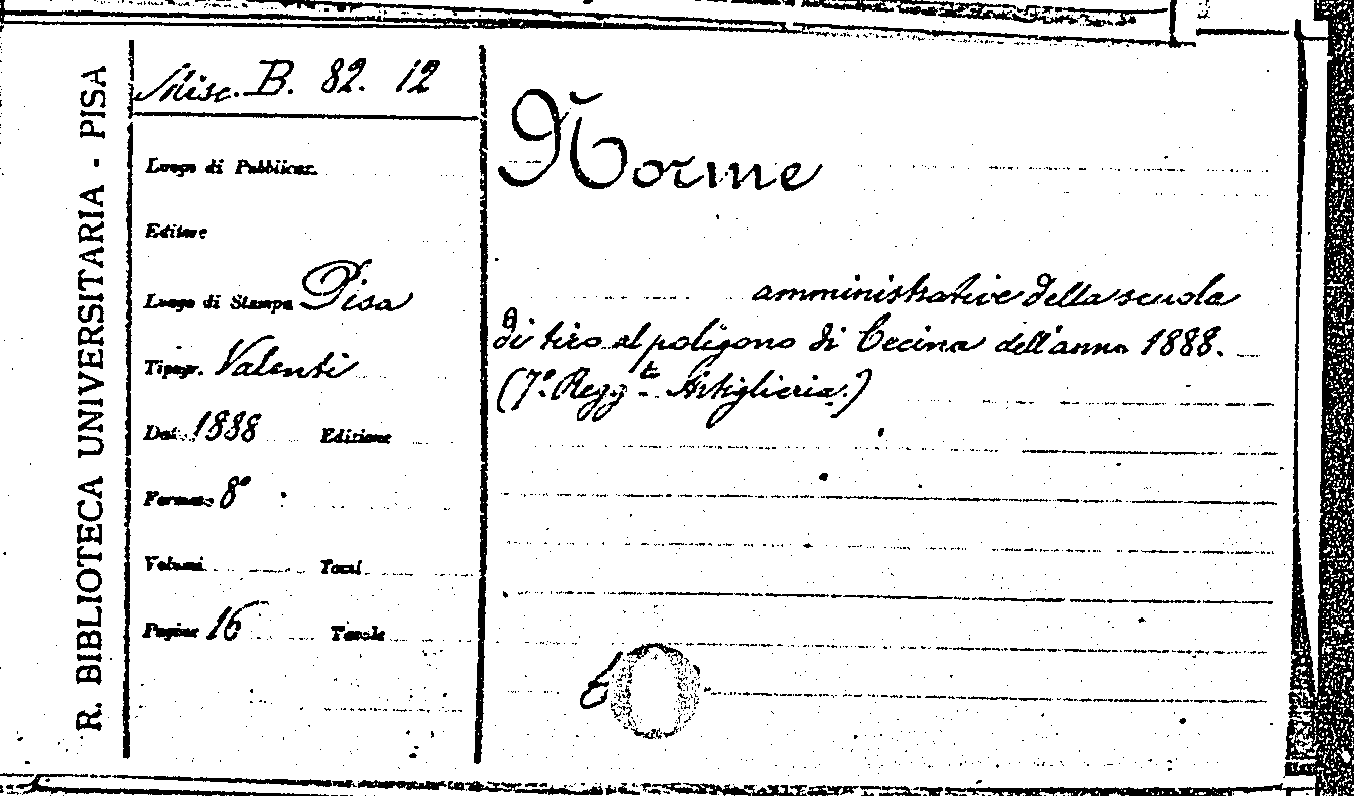 R. BIBLIOTECA UNIVERSITARIA - PISA
Misc. B. 82. 12
Luogo di Pubblicaz.
Editore
Luogo di Stampa Pisa
Tipogr. Valenti
Dat. 1888 Edizione
Formato 8°
Volumi Total
Pagine 16 Tavole
Norme
amministrative della scuola
di tiro al poligono di Cecina dell'anno 1888.
(7° Regg.te Artiglieria.)